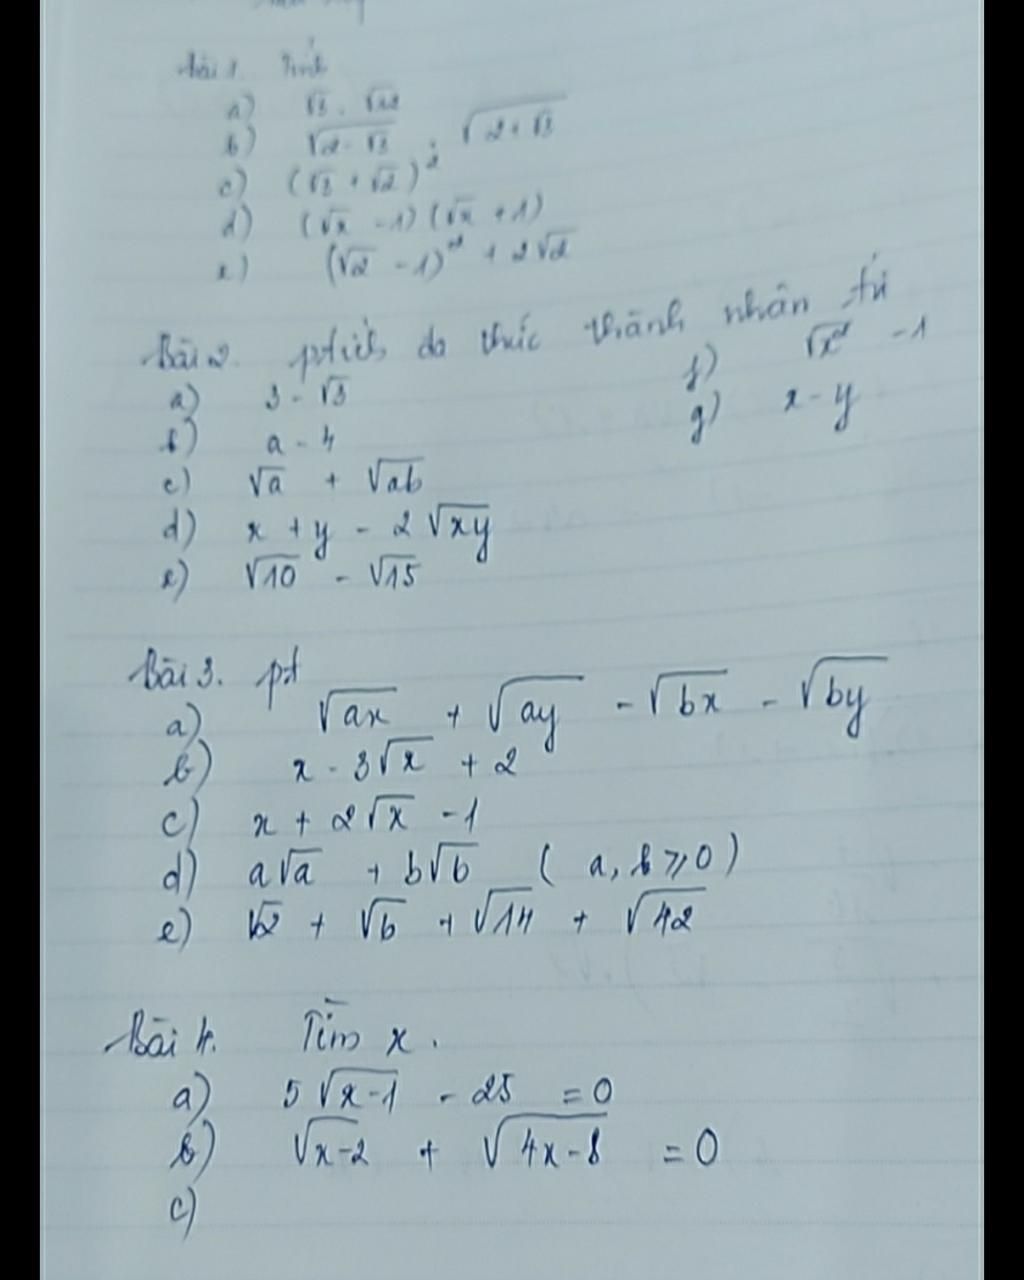 Bài 1. Tính
a) √3 . √12
b) √(2 - √3) . √(2 + √3)
c) (√3 + √2)²
d) (√x - 1)(√x + 1)
e) (√2 - 1)² + 2√2
Bài 2. ptích đa thức thành nhân tử
a) 3 - √3
b) a - 4
c) √a + √ab
d) x + y - 2√xy
e) √10 - √15
f) √x² - 1
g) x - y
Bài 3. pt
a) √ax + √ay - √bx - √by
b) x - 3√x + 2
c) x + 2√x - 1
d) a√a + b√b (a, b ⩾ 0)
e) √2 + √6 + √14 + √42
Bài 4. Tìm x.
a) 5√(x-1) - 25 = 0
b) √(x-2) + √(4x-8) = 0
c)